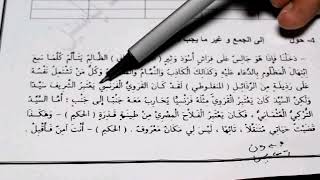 4- حول إلى الجمع و غير ما يجب
- دخلنا فإذا هو جالس على فراش أسود وثير الظالم يتألم كلما سمع
ابتهال المظلوم بالدعاء عليه وكذلك الكاذب والنمام و وكل من تشتمل نفسه
على رذيلة من الرذائل (المنفلوطي) لقد كان القروي الفرنسي يعتبر الشريف سيدا
ولكن سيدا كان يعتبره مثله فرنسيا يحارب معه جنبا إلى جنب: أما السيد
التركي العثماني، فكان يعتبر الفلاح المصري من طينة قذرة (الحكيم) - وهكذا
قضيت حياتي متنقلا، تائها، ليس لي مكان معروف. (الحكيم) - أنت آمن فأقبل.